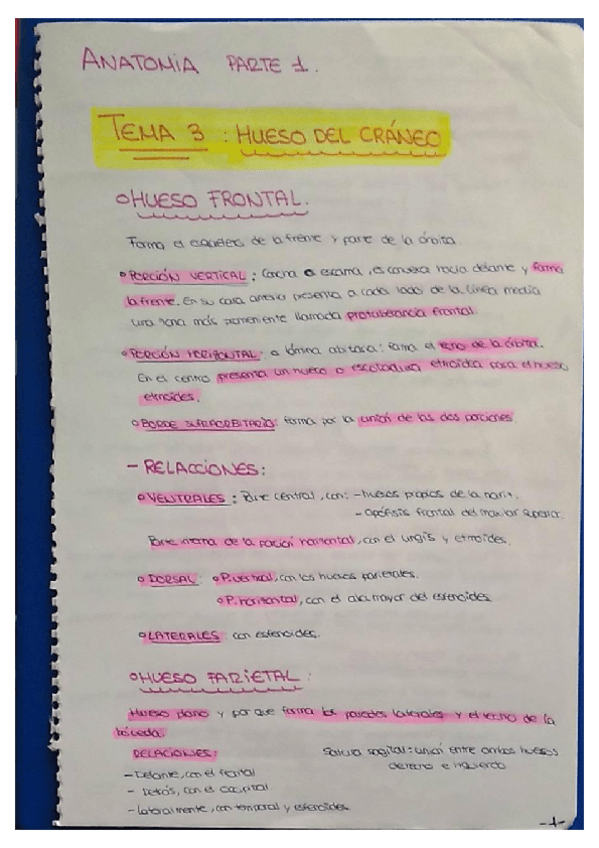 ANATOMIA PARTE 1.
TEMA 3 : HUESO DEL CRÁNEO
HUESO FRONTAL.
Forma el esqueleto de la frente y parte de la órbita.
PORCIÓN VERTICAL : Concha o escama, es convexa hacia delante y forma
la frente. En su cara anterior presenta a cada lado de la línea media
una zona más prominente llamada protuberancia frontal.
PORCIÓN HORIZONTAL: o lámina orbitaria: forma el techo de la órbita.
En el centro presenta un hueco o escotadura etmoidea para el hueso
etmoides.
BORDE SUPRAORBITARIO: forma por la unión de las dos porciones
- RELACCIONES:
VENTRALES : Parte central, con: - huesos propios de la nariz.
- Apófisis frontal del maxilar superior.
Parte interna de la porción horizontal, con el ungis y etmoides.
DORSAL: P. vertical, con los huesos parietales.
P. horizontal, con el ala mayor del esfenoides
LATERALES: con esfenoides.
HUESO PARIETAL :
Hueso plano y par que forma las paredes laterales y el techo de la
bóveda.
RELACIONES:
Sutura sagital: unión entre ambos huesos
derecho e izquierdo
- Delante, con el frontal
- Detrás, con el occipital
- Lateralmente, con temporal y esfenoides
-1-